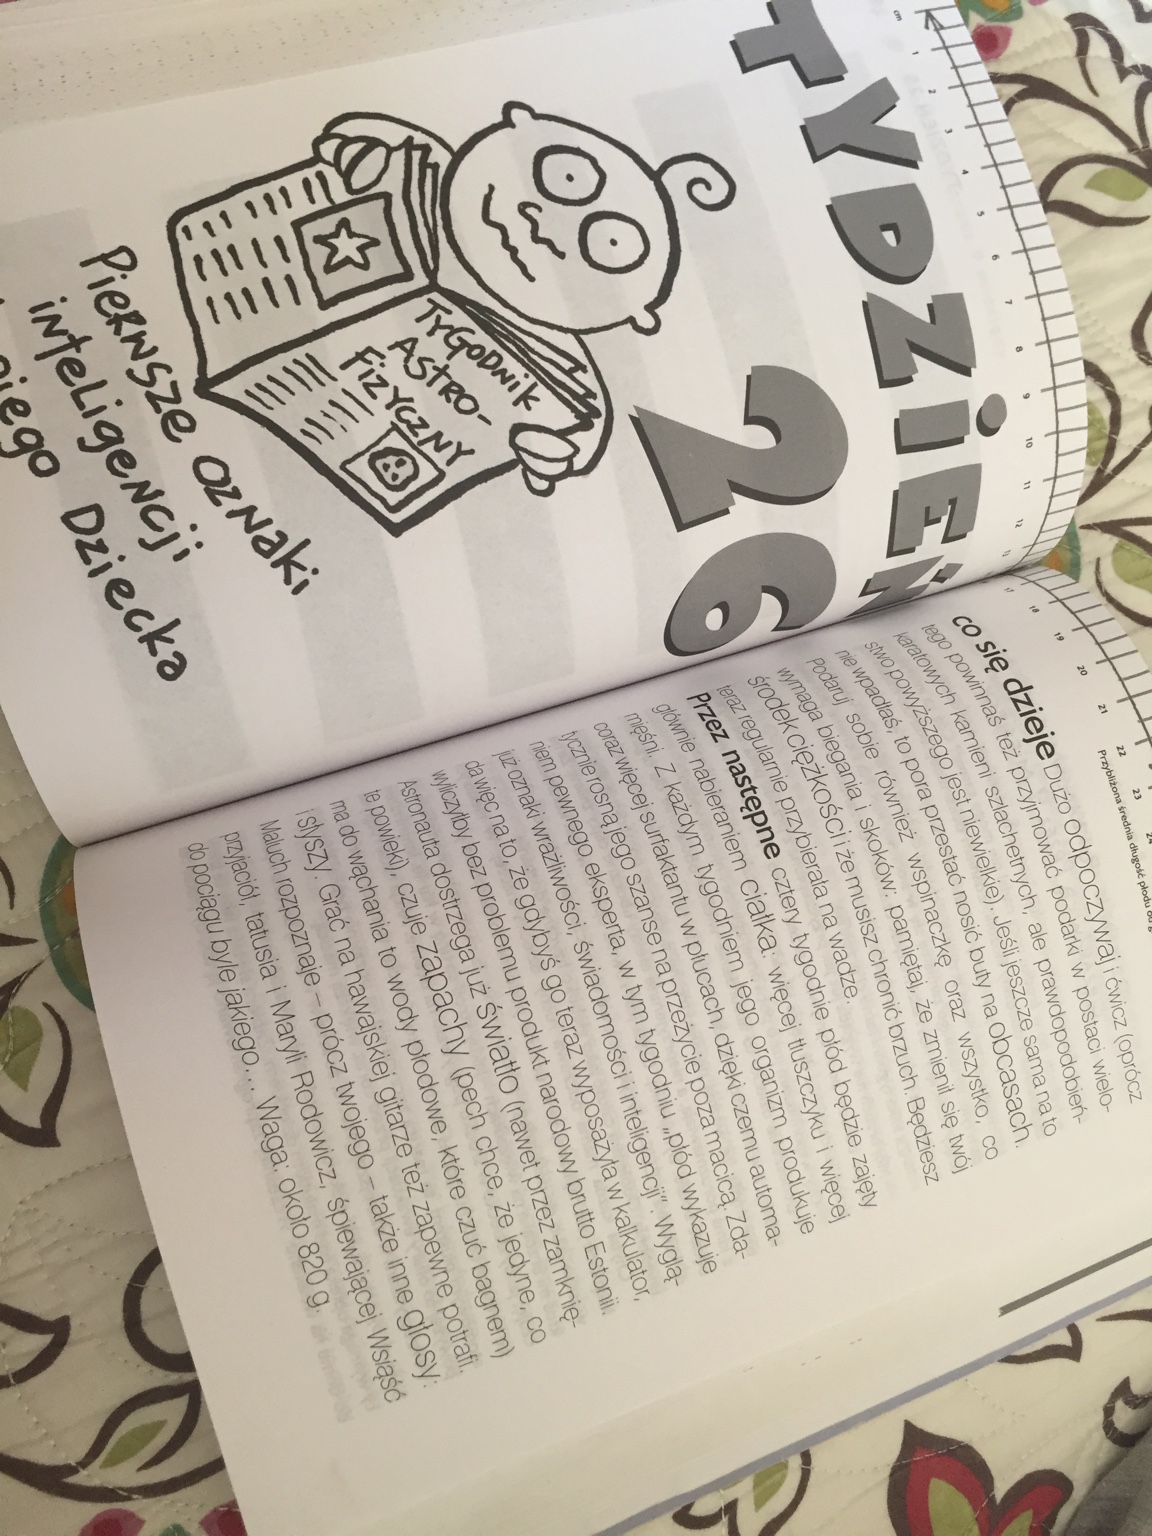 cm 1 2 3 4 5 6 7 8 9 10 11 12
TYDZIEŃ
26
TYGODNIK
ASTRO-
FIZYCZNY
PIERWSZE OZNAKI
INTELIGENCJI
DZIECKA
17 18 19 20 21 22 23 24
Przybliżona średnia długość płodu od
co się dzieje Dużo odpoczywaj i ćwicz (oprócz
tego powinnaś też przyjmować podarki w postaci wielo-
karatowych kamieni szlachetnych, ale prawdopodobień-
stwo powyższego jest niewielkie). Jeśli jeszcze sama na to
nie wpadłaś, to pora przestać nosić buty na obcasach.
Podaruj sobie również wspinaczkę oraz wszystko, co
wymaga biegania i skoków: pamiętaj, że zmienił się twój
środek ciężkości i że musisz chronić brzuch. Będziesz
teraz regularnie przybierała na wadze.
Przez następne cztery tygodnie płód będzie zajęty
głównie nabieraniem ciałka: więcej tłuszczyku i więcej
mięśni. Z każdym tygodniem jego organizm produkuje
coraz więcej surfaktantu w płucach, dzięki czemu automa-
tycznie rosną jego szanse na przeżycie poza macicą. Zda-
niem pewnego eksperta, w tym tygodniu „płód wykazuje
już oznaki wrażliwości, świadomości i inteligencji". Wyglą-
da więc na to, że gdybyś go teraz wyposażyła w kalkulator,
wyliczyłby bez problemu produkt narodowy brutto Estonii.
Astronauta dostrzega już światło (nawet przez zamknię-
te powieki), czuje zapachy (pech chce, że jedyne, co
ma do wąchania to wody płodowe, które czuć bagnem)
i słyszy. Grać na hawajskiej gitarze też zapewne potrafi.
Maluch rozpoznaje – prócz twojego – także inne głosy:
przyjaciół, tatusia i Maryli Rodowicz, śpiewającej Wsiąść
do pociągu byle jakiego… Waga: około 820 g.